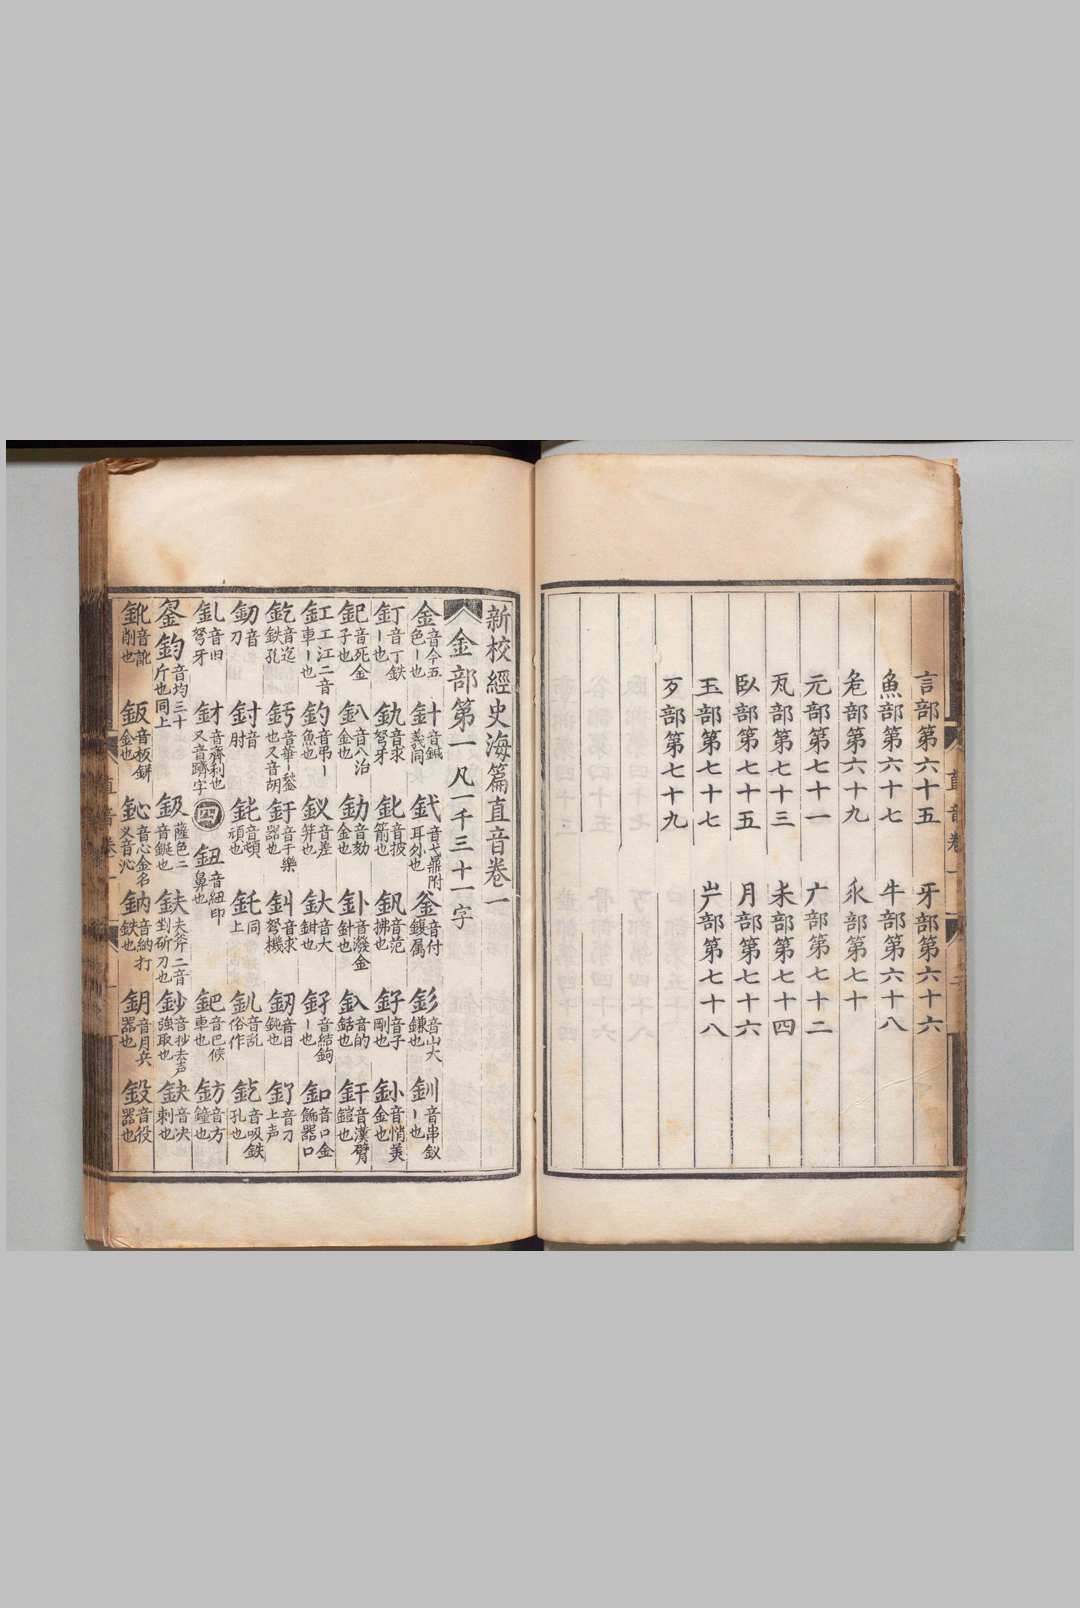 言部第六十五　牙部第六十六
魚部第六十七　牛部第六十八
危部第六十九　永部第七十
元部第七十一　广部第七十二
瓦部第七十三　未部第七十四
臥部第七十五　月部第七十六
玉部第七十七　屵部第七十八
歹部第七十九
新校經史海篇直音卷一
金部第一凡一千三十一字
金音今五色ー也 針音鍼義同 釴音弋鼎附耳外也 釜音付鍑属 釤音山大鐮也 釧音串釵ー也
釘音丁鉄ー也 釚音求弩牙 釓音披箭也 釩音范拂也 釨音子剛也 釥音悄美金也
釲音死金子也 釟音八治金也 釛音劾金也 釙音潑金針也 釞音的銛也 釬音漢臂鎧也
釭工江二音車ー也 釣音弔ー魚也 釵音差笄也 釱音大鉗也 釨音結鉤ー也 釦音口金飾器口
釳音迄鉄孔 釫音華ー鍫也又音胡 釪音于樂器也 釻音求弩機 釰音日鈍也 釖音刀上声
釖音刀 釷音肘 鈍音頓頑也 釷同上 釓音乱俗作 釳音吸鉄孔也
釓音旧弩牙 釮音齊利也又音躋字 四 鈕音紐印鼻也 鈀音巴候車也 鈁音方鐘也
鋈 鈞音均三十斤也同上 鈒薩色二音鋋也 鈇夫斧二音剉斫刀也 鈔音抄去声強取也 鈌音决刺也
鈋音訛削也 鈑音板鉼金也 鈊音心金名又音沁 鈉音納打鉄也 鈅音月兵器也 鈠音役器也
直音卷一
直音卷一